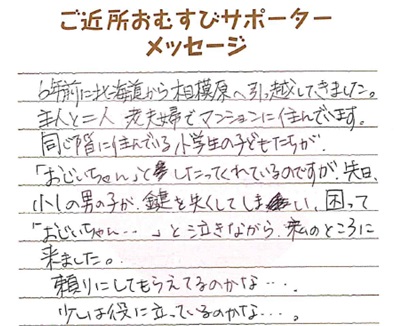 ご近所おむすびサポーター
メッセージ
6年前に北海道から相模原へ引っ越してきました。
主人と二人 老夫婦でマンションに住んでいます。
同じ階に住んでいる小学生の子どもたちが、
「おじいちゃん」としたってくれているのですが、先日、
小1の男の子が、鍵を失くしてしまい、困って
「おじいちゃん・・」と泣きながら、私のところに
来ました。
頼りにしてもらえてるのかな・・・。
少しは役に立っているのかな・・・。